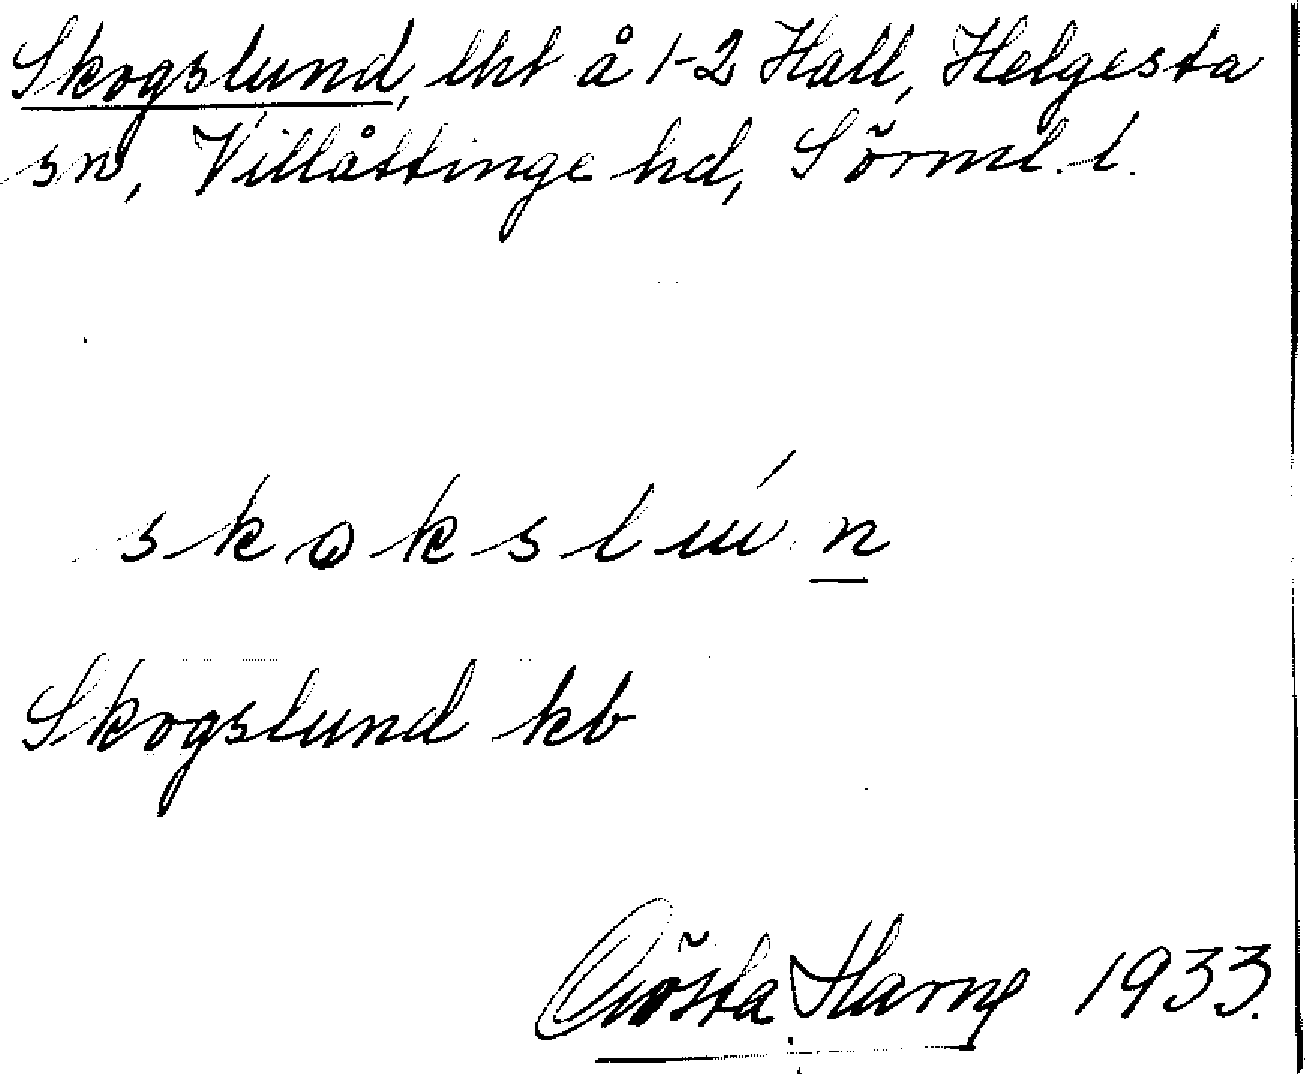 Skogslund, lht å 1-2 Hall, Helgesta
sn, Villåttinge hd, Sörml. l.
skokslu´n
Skogslund kb
Gösta Harng 1933.